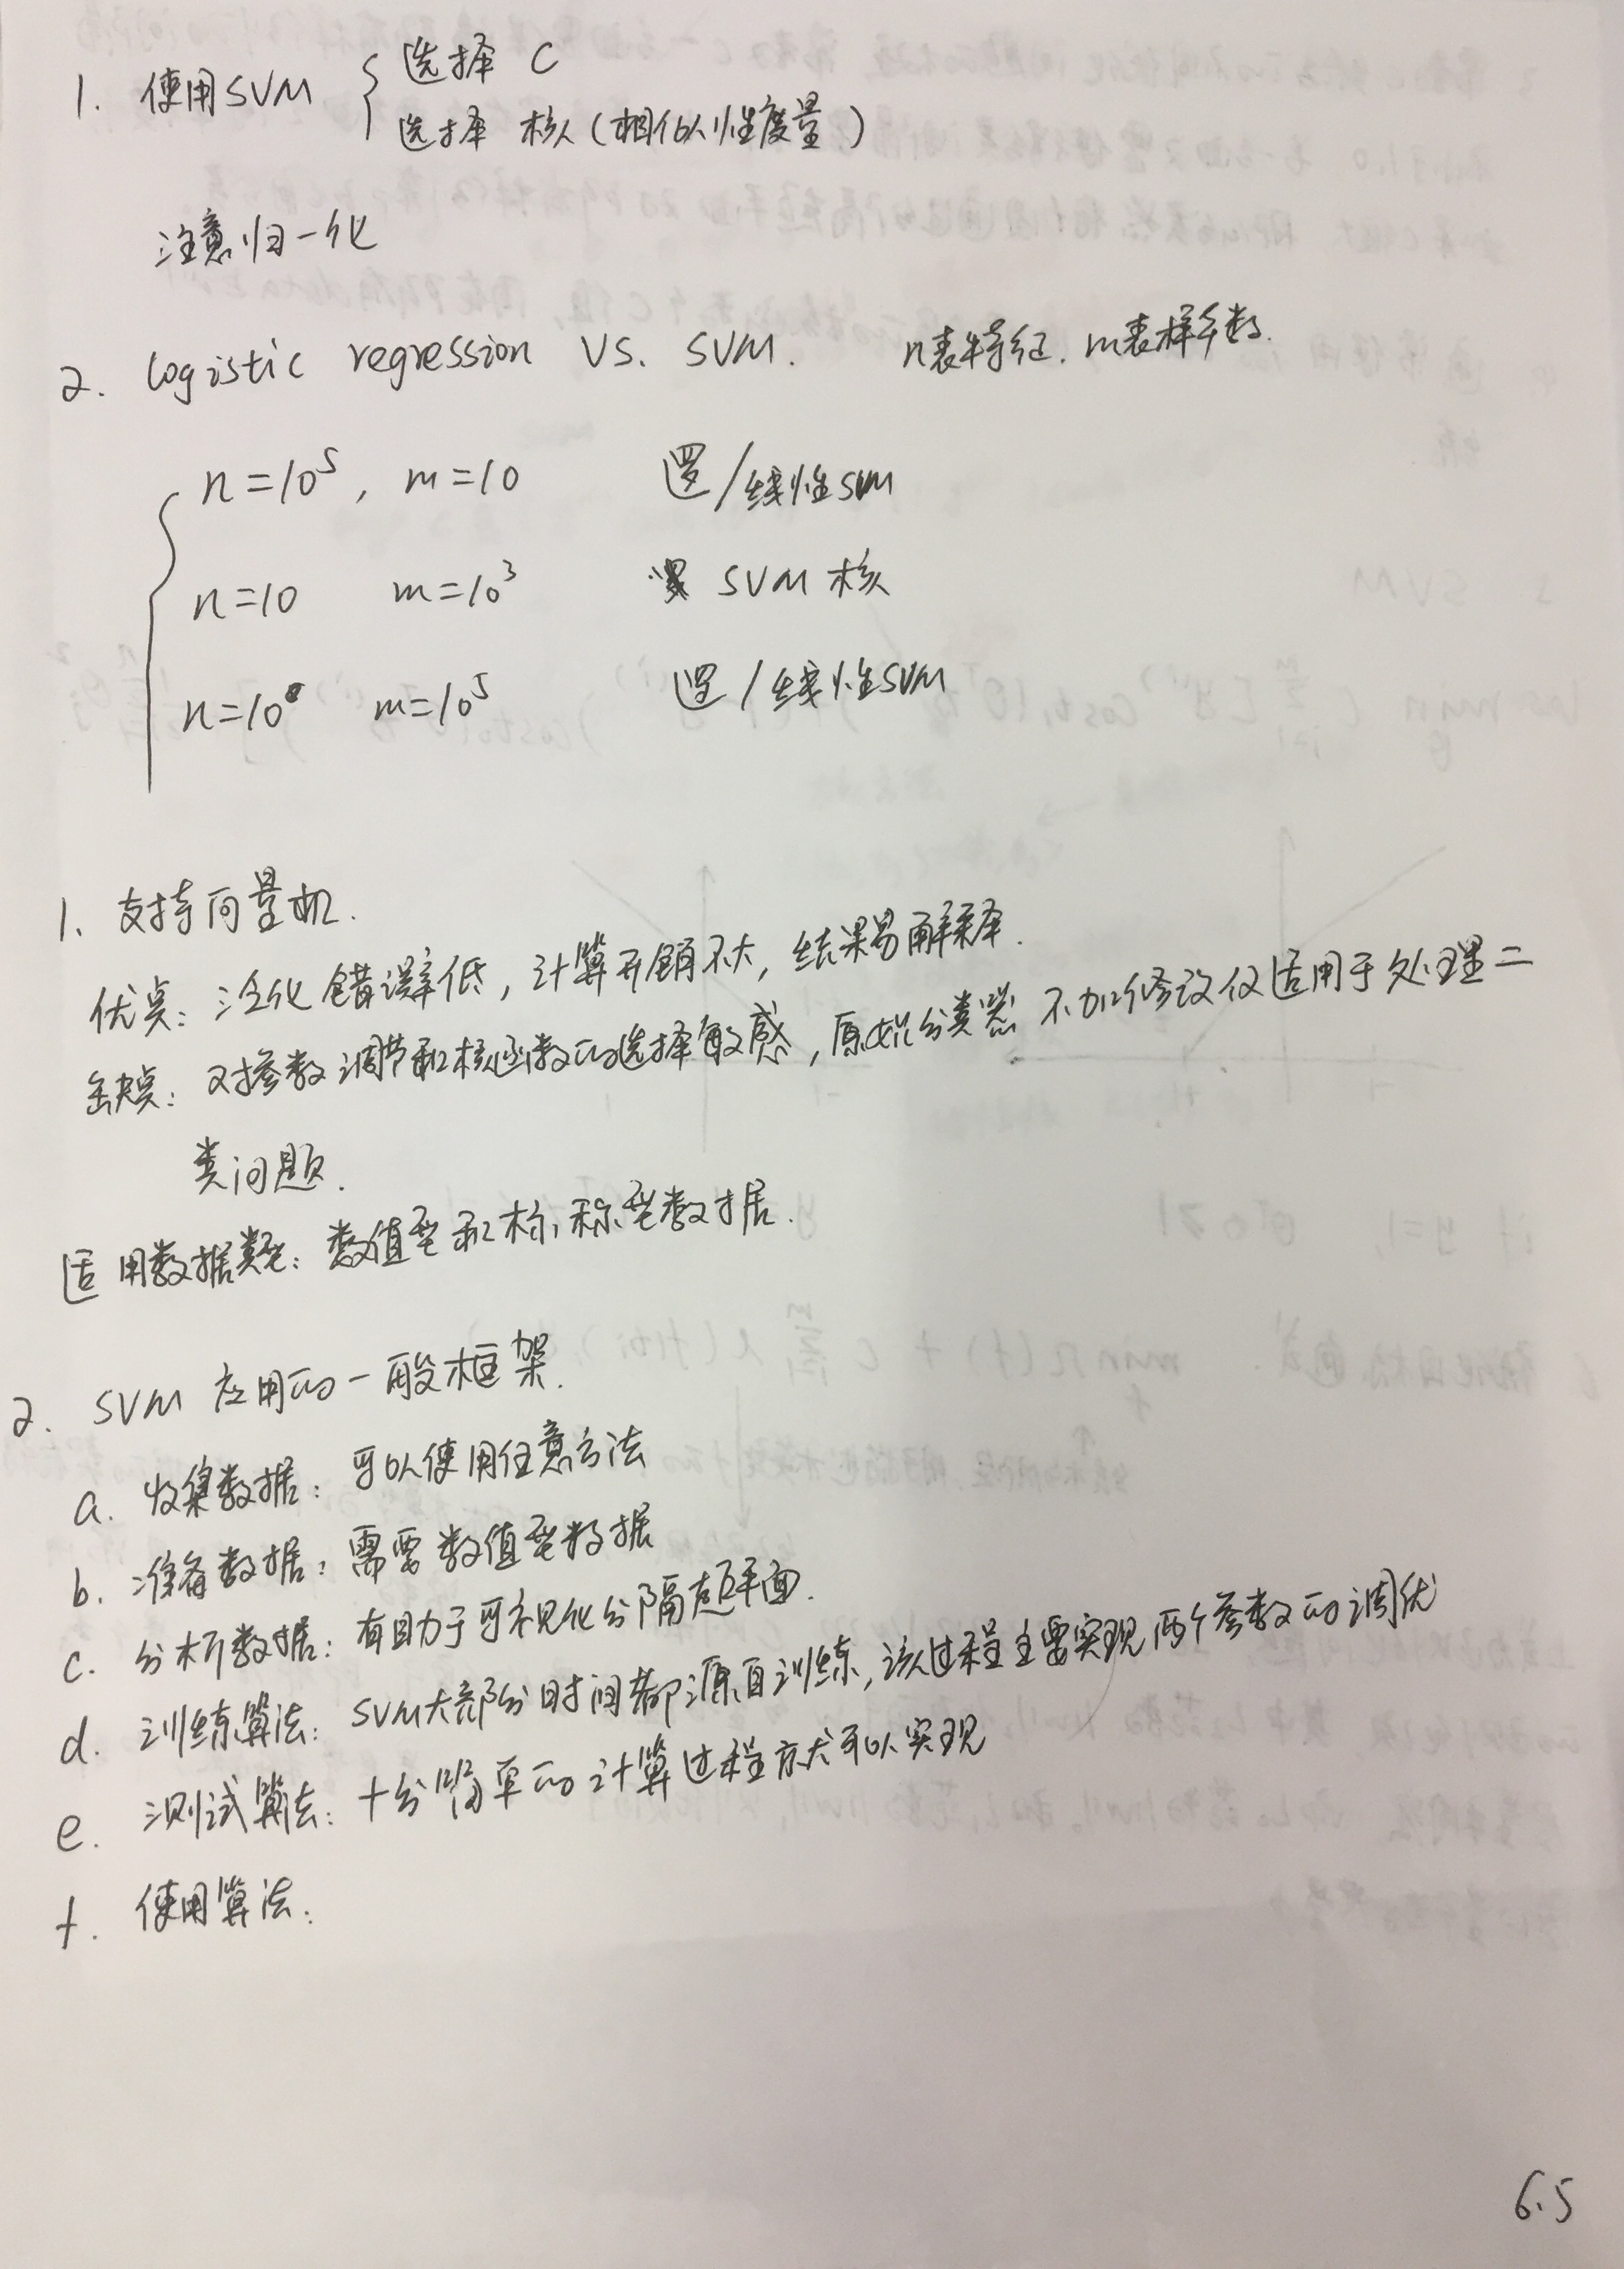 1. 使用SVM { 选择 C
选择 核(相似性度量)
注意归一化
2. logistic regression VS. SVM. n表特征. m表样本数.
n=10⁵, m=10 逻/线性SVM
n=10 m=10³ SVM 核
n=10 m=10⁵ 逻/线性SVM
1. 支持向量机.
优点: 泛化错误率低, 计算开销不大, 结果易解释.
缺点: 对参数调节和核函数的选择敏感, 原始分类器 不加修改仅适用于处理二
类问题.
适用数据类型: 数值型和标称型数据.
2. SVM 应用的一般框架.
a. 收集数据: 可以使用任意方法
b. 准备数据: 需要数值型数据
c. 分析数据: 有助于可视化分隔超平面.
d. 训练算法: SVM大部分时间都源自训练, 该过程主要实现两个参数的调优
e. 测试算法: 十分简单的计算过程就可以实现
f. 使用算法:
6.5